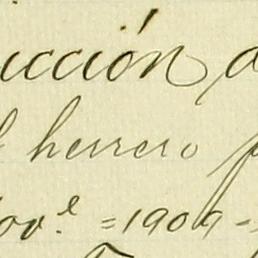 ucción d
l herrero p
ov.e =1909=